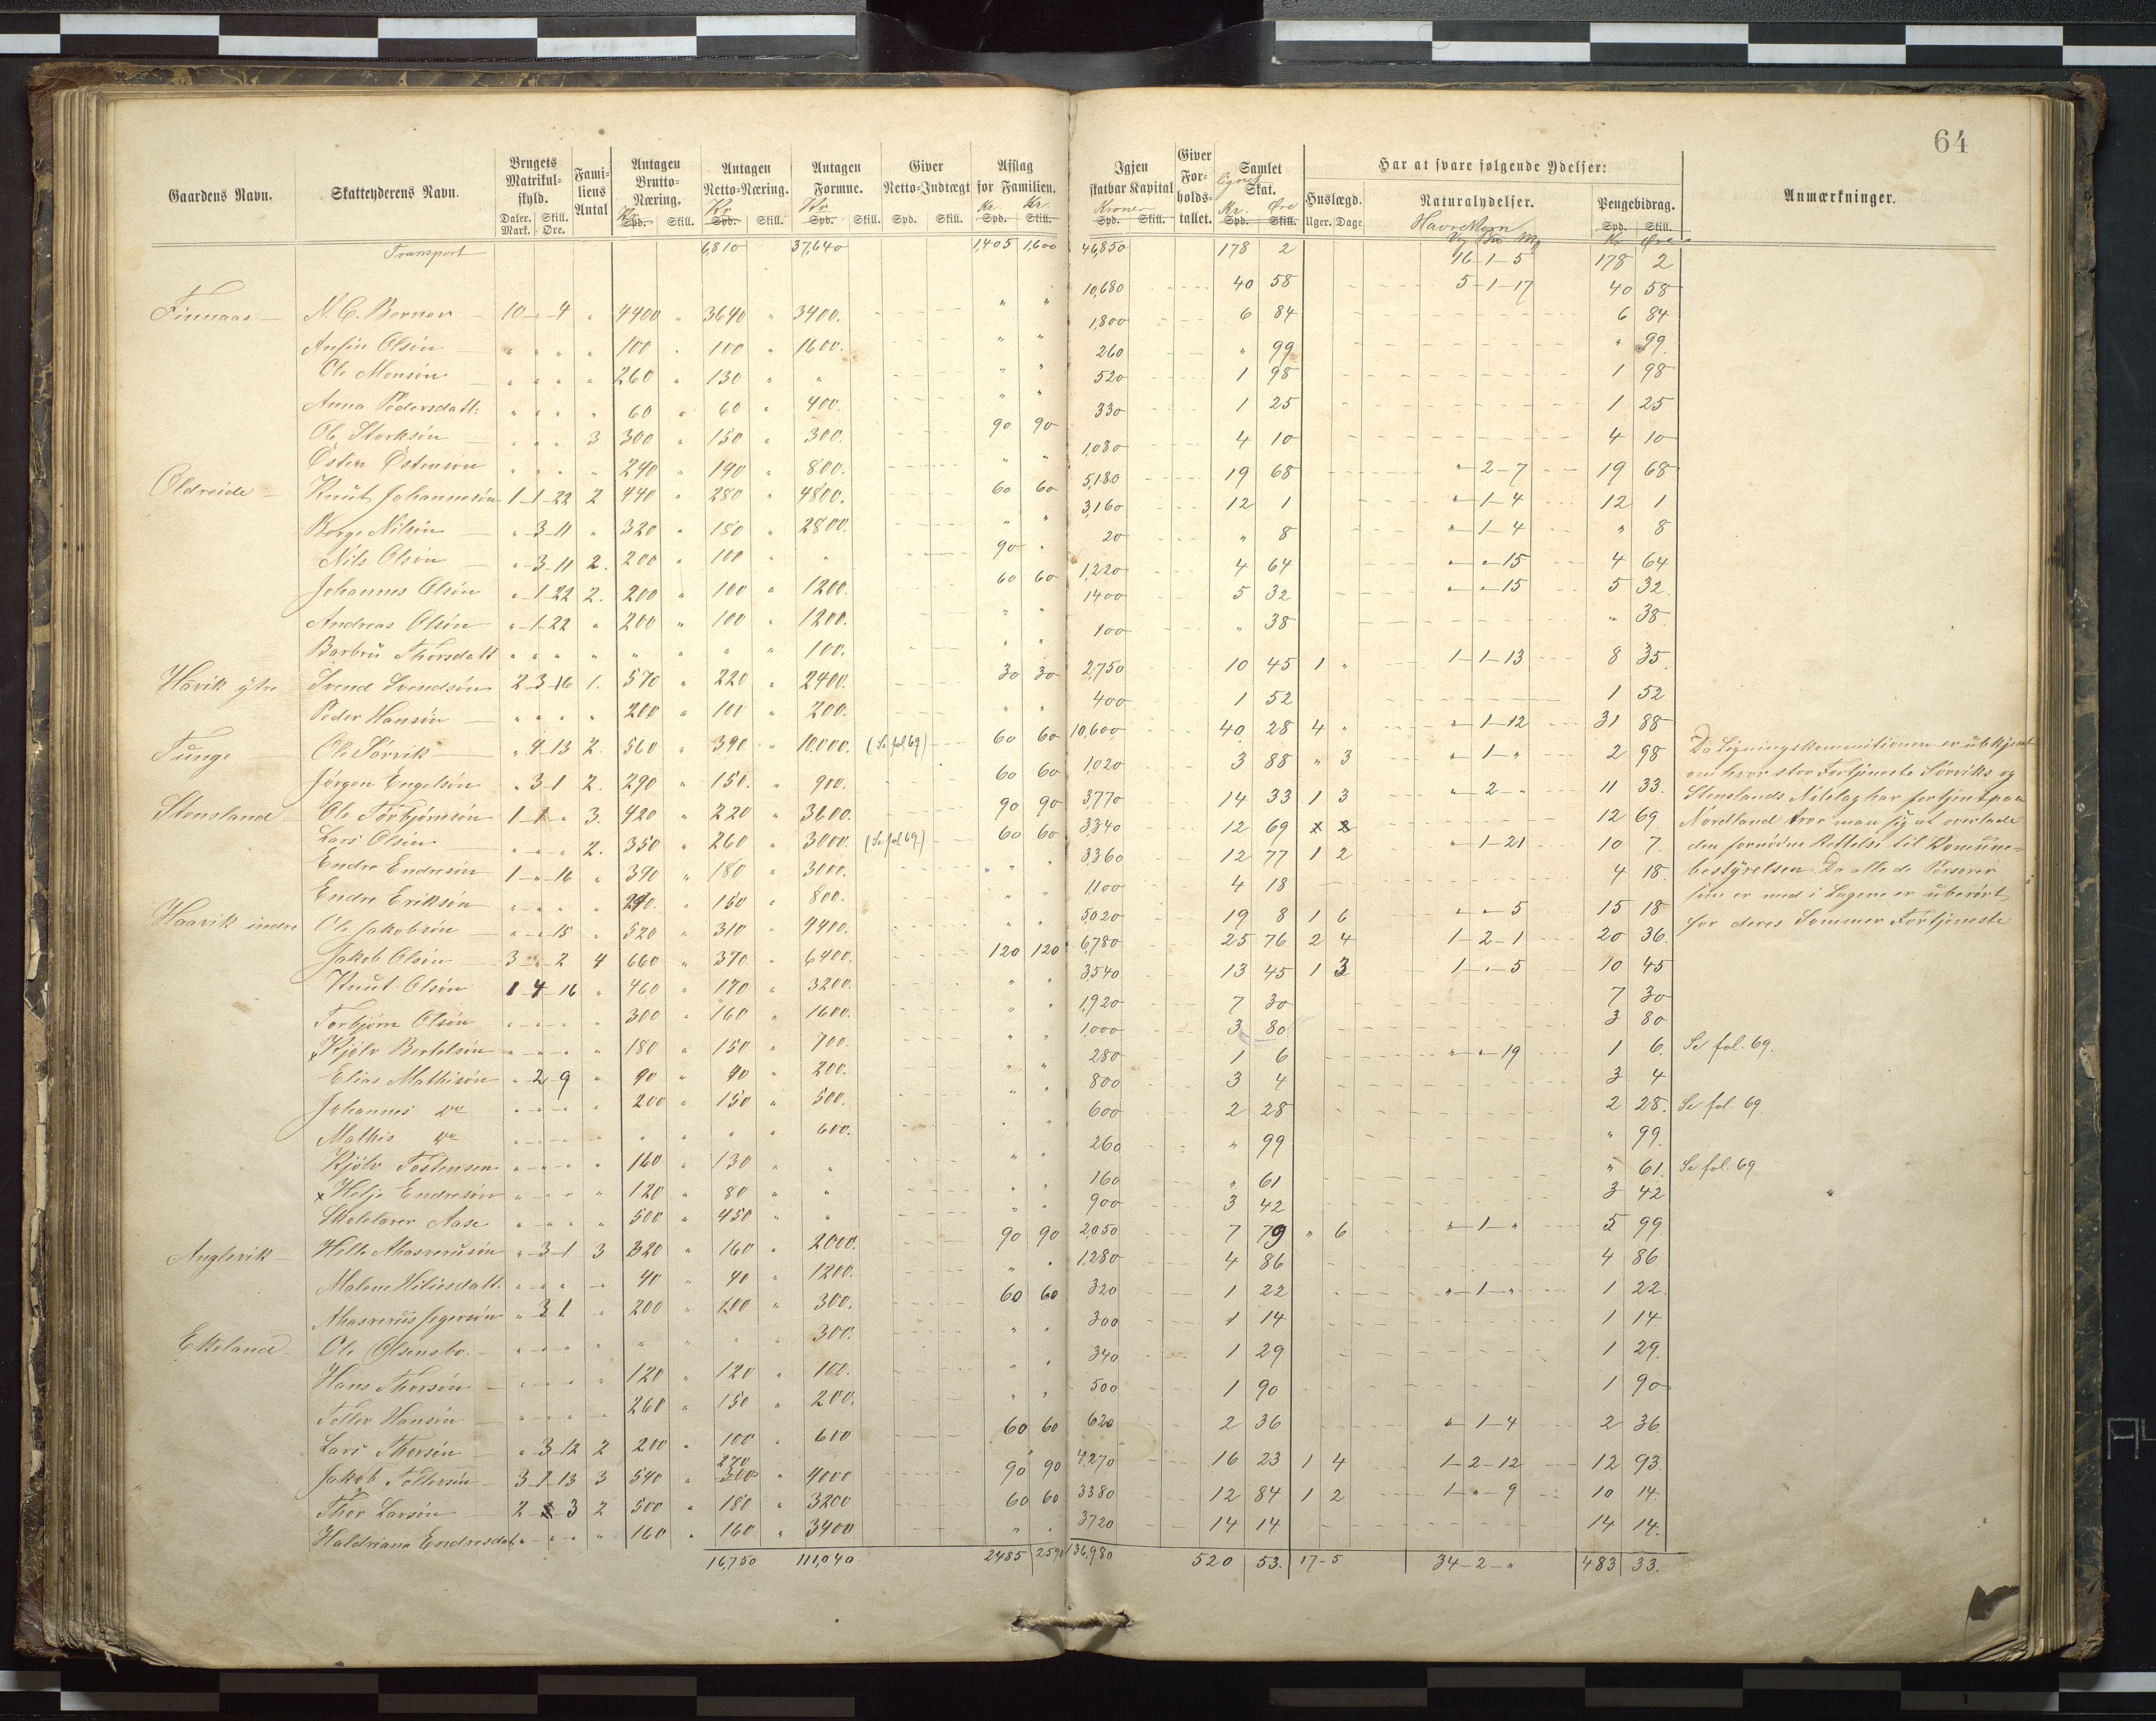 64
Gaardens Navn. Skatteyderens Navn. Brugets Matrikul-skyld. Daler. Mark. Skill. Øre. Fami-liens Antal Antagen Brutto-Næring. Kr. Spd. Skill. Antagen Netto-Næring. Kr Spd. Skill. Antagen Formue. Kr Spd. Skill. Giver Netto-Indtægt Spd. Skill. Afslag for Familien. Kr. Spd. Kr. Skill. Igjen skatbar Kapital Kroner Spd. Skill. Giver For-holds-tallet. Samlet lignet Skat. Kr. Spd. Øre Skill. Har at svare følgende Ydelser: Huslægd. Uger. Dage Naturalydelser. Havre Korn Vg Bu Mg Pengebidrag. Spd. Skill. Kr Øre Anmærkninger.
Transport 6,810 37,640 1,405 1,600 46,850 178 2 16-1-5 178 2
Finnaas N. C. Berner 10 " 4 " 4400 " 3640 " 3400. " " 10,680 40 58 5-1-17 40 58
Ansin Olsön " " " " 100 " 100 " 1600. " " 1,800 6 84 6 84
Ole Monsön " " " " 260 " 130 " " " " 260 " 99 " 99.
Anna Pedersdatt: " " " " 60 " 60 " 400. " " 520 1 98 1 98
Ol. Storksön " " " 3 300 " 150 " 300. 90 90 330 1 25 1 25
Östen Östensön " " " " 240 " 190 " 800. " " 1,080 4 10 4 10
Oldreide Knut Johannesön 1-1-22 2 440 " 280 " 4800. 60 60 5,180 19 68 "-2-7 19 68
Börge Nilsön "-3-11 " 320 " 180 " 2800. " " 3,160 12 1 "-1-4 12 1
Nils Olsön "-3-11 2. 200 " 100 " " 90 " 20 " 8 "-1-4 " 8
Johannes Olsön "-1-22 2. 200 " 100 " 1200. 60 60 1,220 4 64 "-"-15 4 64
Andreas Olsön "-1-22 " 200 " 100 " 1200. " " 1400 5 32 "-"-15 5 32.
Barbru Thorsdatt " " " " " " " " 100. " " 100 " 38 " 38
Hovik ytre Svend Svendsön 2-3-16 1. 570 " 220 " 2400. 30 30 2,750 10 45 1 " 1-1-13 8 35
Peder Hansön " " " " 200 " 100 " 200. " " 400 1 52 1 52
Tunge Ole Sörvik "-4-13 2. 560 " 390 " 10,000. (Se fol 69) 60 60 10,600 40 28 4 " "-1-12 31 88
Jörgen Engelsön "-3-1 2. 290 " 150. " 900. 60 60 1,020 3 88 " 3 "-1-" 2 98
Stensland Ole Torbjörnsön 1-1-" 3. 420 " 220 " 3600. 90 90 3,770 14 33 1 3 "-2-" 11 33.
Lars Olsön " " " 2. 350 " 260 " 3000. (Se fol 69) 60 60 3340 12 69 12 69
Endre Endresön 1-"-16 " 390 " 180 " 3000. " " 3360 12 77 1 2 "-1-21 10 7.
Endre Eriksön " " " " 290. " 150 " 800. " " 1100 4 18 4 18.
Haavik indre Ole Jakobsön "-"-15 " 520 " 310 " 4400. " " 5020 19 8 1 6 "-"-5 15 18
Jakob Olsön 3-"-2 4 660 " 370. " 6400. 120 120 6,780 25 76 2 4 1-2-1 20 36.
Knut Olsön 1-4-16 " 460 " 170 " 3200. " " 3540 13 45 1 3 1-"-5 10 45
Torbjörn Olsön " " " " 300 " 160 " 1600. " " 1,920 7 30 7 30
x Kjölv Bertelsön " " " " 180 " 150 " 700. " " 1,000 3 80 3 80
Elias Mathisön "-2-9 " 90 " 90 " 200. " " 280 1 6 "-"-19 1 6. Se fol. 69.
Johannes do " " " " 200 " 150 " 500. " " 800 3 4 3 4
Mathis do " " " " " " " " 600. " " 600 2 28 2 28. Se fol. 69.
Kjölv Tostensen " " " " 160 " 130 " " " " 260 " 99 " 99.
x Helje Endresön " " " " 120 " 80 " " " " 160 " 61 " 61. Se fol. 69
Skolelærer Aase " " " " 500 " 450 " " " " 900 3 42 3 42
Anglevik Helle Ahasverusön "-3-1 3 320 " 160 " 2000. 90 90 2,050 7 79 " 6 "-1-" 5 99.
Malene Hiliesdatt. " " " " 40 " 40 " 1200. " " 1,280 4 86 4 86
Ahasverus Jegersön "-3-1 " 200 " 100 " 300. 60 60 320 1 22 "-1-" 1 22.
Ekeland Ole Olsensbo. " " " " " " " " 300. " " 300 1 14 1 14
Hans Thorsön " " " " 120 " 120 " 100. " " 340 1 29 1 29.
Teller Hansön " " " " 260 " 150 " 200. " " 500 1 90 1 90
Lars Thorsön "-3-12 2 200 " 100 " 600 60 60 620 2 36 "-1-4 2 36.
Jakob Tellersön 3-1-13 3 540 " 270 300 " 4000 90 90 4,270 16 23 1 4 1-2-12 12 93.
Thor Larsön 2 3 2 500 " 180 " 3200 60 60 3380 12 84 1 2 1-"-9 10 14.
Haldriana Endresdat " " " " 160 " 160 " 3400 " " 3720 14 14 14 14.
16,750 111,040 2485 2590 136,980 520 53. 17-5 34-2-" 483 33.
Da Ligningskommitionen er ubkjent
om hvor stor Fortjeneste Sörviks og
Stenslands Notelag har fortjent paa
Nordland tror man sig at overlade
den fornödne Rettelse til Komune-
bestyrelsen Da alle de Personer
som er med i Lagene er uberört
for deres Sommer Fortjeneste